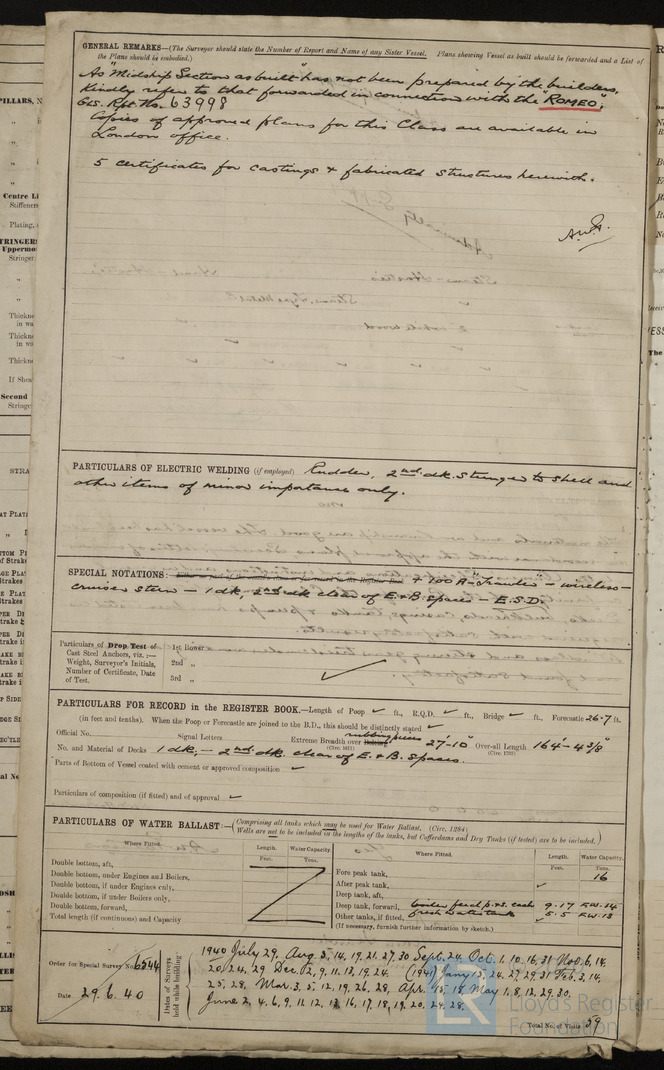 GENERAL REMARKS—(The Surveyor should state the Number of Report and Name of any Sister Vessel. Plans showing Vessel as built should be forwarded and a List of
the Plans should be embodied.)
As "Midship Section as built" has not been prepared by the builders,
kindly refer to that forwarded in connection with the "ROMEO",
Gls. Rpt. No. 63998
Copies of approved plans for this Class are available in
London office.
5 certificates for castings & fabricated structures herewith.
PARTICULARS OF ELECTRIC WELDING (if employed) Rudder, 2nd dk. stringer to shell and
other items of minor importance only.
SPECIAL NOTATIONS: + 100 A "Trawler" – wireless –
cruiser stern – 1 dk, 2nd dk clear of E & B spaces – E.S.D.
Particulars of Drop Test of
Cast Steel Anchors, viz.:—
Weight, Surveyor's Initials,
Number of Certificate, Date
of Test.
1st Bower
2nd „
3rd „
PARTICULARS FOR RECORD in the REGISTER BOOK.—Length of Poop ✓ ft., R.Q.D. ✓ ft., Bridge ✓ ft., Forecastle 26·7 ft.
(in feet and tenths). When the Poop or Forecastle are joined to the B.D., this should be distinctly stated ✓
Official No. Signal Letters Extreme Breadth over rubbing pieces 27'-10" Over-all Length 164'-4 3/8"
(Circ. 1703)
No. and Material of Decks 1 dk, – 2nd dk. clear of E. & B. spaces.
Parts of Bottom of Vessel coated with cement or approved composition ✓
Particulars of composition (if fitted) and of approval ✓
PARTICULARS OF WATER BALLAST:—(Comprising all tanks which may be used for Water Ballast. (Circ. 1284)
Wells are not to be included in the lengths of the tanks, but Cofferdams and Dry Tanks (if tested) are to be included.)
Where Fitted. Length. Water Capacity. Where Fitted. Length. Water Capacity.
Feet. Tons. Feet. Tons.
Double bottom, aft,
Double bottom, under Engines and Boilers,
Double bottom, if under Engines only,
Double bottom, if under Boilers only,
Double bottom, forward,
Total length (if continuous) and Capacity
Fore peak tank, 16
After peak tank, ✓
Deep tank, aft,
Deep tank, forward, boiler feed p. & s. each 9·17 F.W. 14
Other tanks, if fitted, fresh water tank 5·5 F.W. 13
(If necessary, furnish further information by sketch.)
Order for Special Survey No. 6544
Date 29.6.40
Dates of Surveys held while building
1940 July 29, Aug 3, 14, 19, 21, 27, 30 Sept. 24 Oct. 1, 10, 16, 31 Nov. 6, 14,
20, 24, 29 Dec. 2, 9, 11, 13, 19, 24. (1941) Jany 15, 24, 27, 29, 31 Feb. 3, 14,
25, 28, Mar. 3, 5, 12, 19, 26, 28, Apr. 15, 18, May 1, 8, 12, 29, 30,
June 2, 4, 6, 9, 11, 12, 13, 16, 17, 18, 19, 20, 24, 28.
Total No. of Visits 59
Lloyd's Register
Foundation